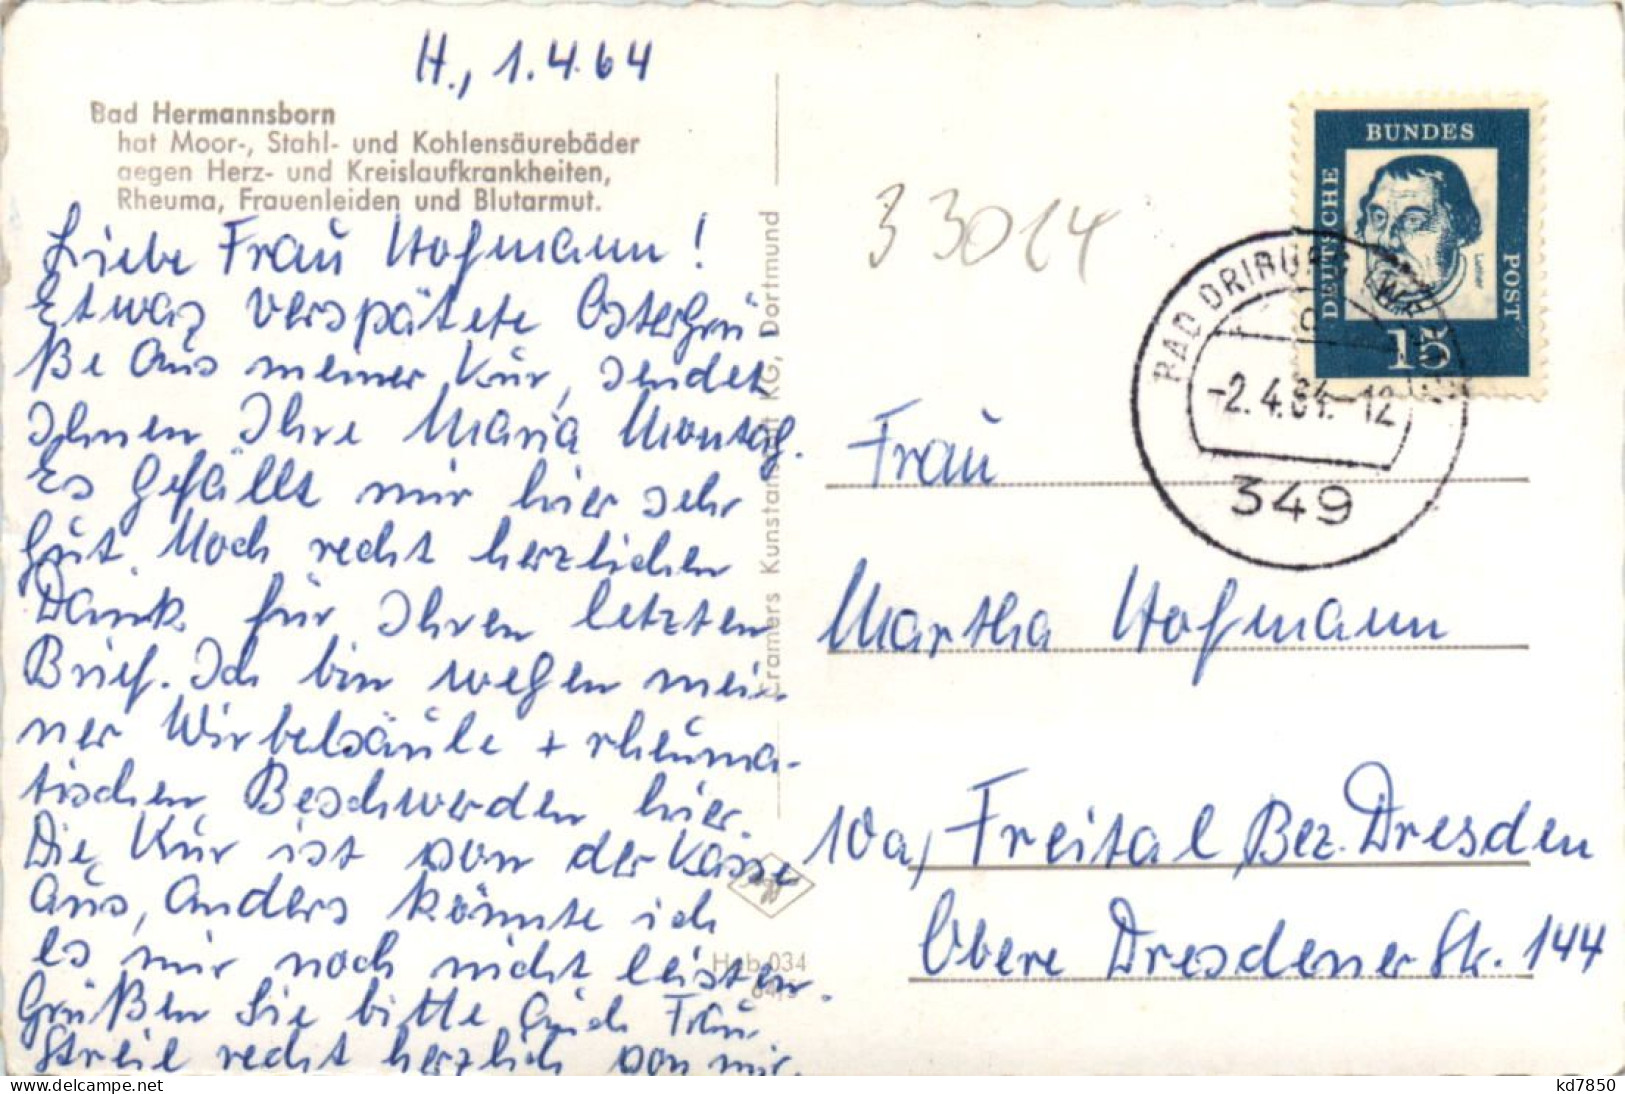 H., 1.4.64
Bad Hermannsborn
hat Moor-, Stahl- und Kohlensäurebäder
gegen Herz- und Kreislaufkrankheiten,
Rheuma, Frauenleiden und Blutarmut.
Liebe Frau Hofmann!
Etwas verspätete Ostergrü-
ße aus meiner Kur, sendet
Ihnen Ihre Maria Montag.
Es gefällt mir hier sehr
gut. Noch recht herzlichen
Dank für Ihren letzten
Brief. Ich bin wegen mei-
ner Wirbelsäule + rheuma-
tischen Beschwerden hier.
Die Kur ist von der Kasse
aus, anders könnte ich
es mir noch nicht leisten.
Grüßen Sie bitte auch Frau
Streil recht herzlich von mir.
Cramers Kunstanstalt KG, Dortmund
Heb 034
33014
DEUTSCHE
BUNDES
POST
Luther
15
BAD DRIBURG (WESTF)
-2.4.64.-12
349
Frau
Martha Hofmann
10a, Freital Bez. Dresden
Obere Dresdener Str. 144
www.delcampe.net
kd7850